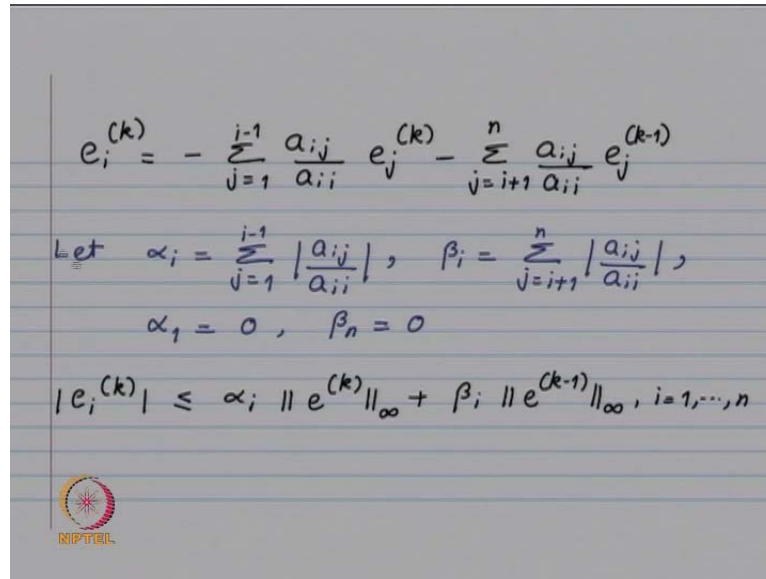 e_i^(k) = - Σ_{j=1}^{i-1} a_ij/a_ii e_j^(k) - Σ_{j=i+1}^{n} a_ij/a_ii e_j^(k-1)
Let α_i = Σ_{j=1}^{i-1} |a_ij/a_ii| , β_i = Σ_{j=i+1}^{n} |a_ij/a_ii| ,
α_1 = 0 , β_n = 0
|e_i^(k)| ≤ α_i ‖e^(k)‖_∞ + β_i ‖e^(k-1)‖_∞ , i=1,...,n
NPTEL